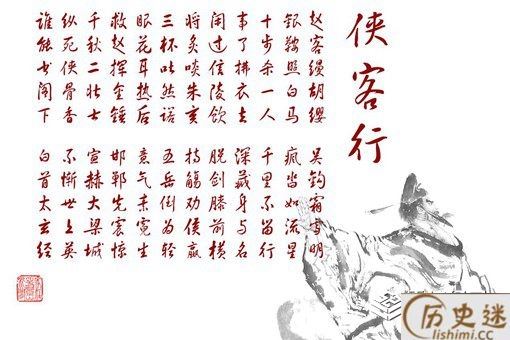 侠客行
赵客缦胡缨
吴钩霜雪明
银鞍照白马
疯沓如流星
十步杀一人
千里不留行
事了拂衣去
深藏身与名
闲过信陵饮
脱剑膝前横
将炙啖朱亥
持觞劝侯嬴
三杯吐然诺
五岳倒为轻
眼花耳热后
意气素霓生
救赵挥金锤
邯郸先震惊
千秋二壮士
宣赫大梁城
纵死侠骨香
不惭世上英
谁能书阁下
白首太玄经
历史迷
lishimi.cc